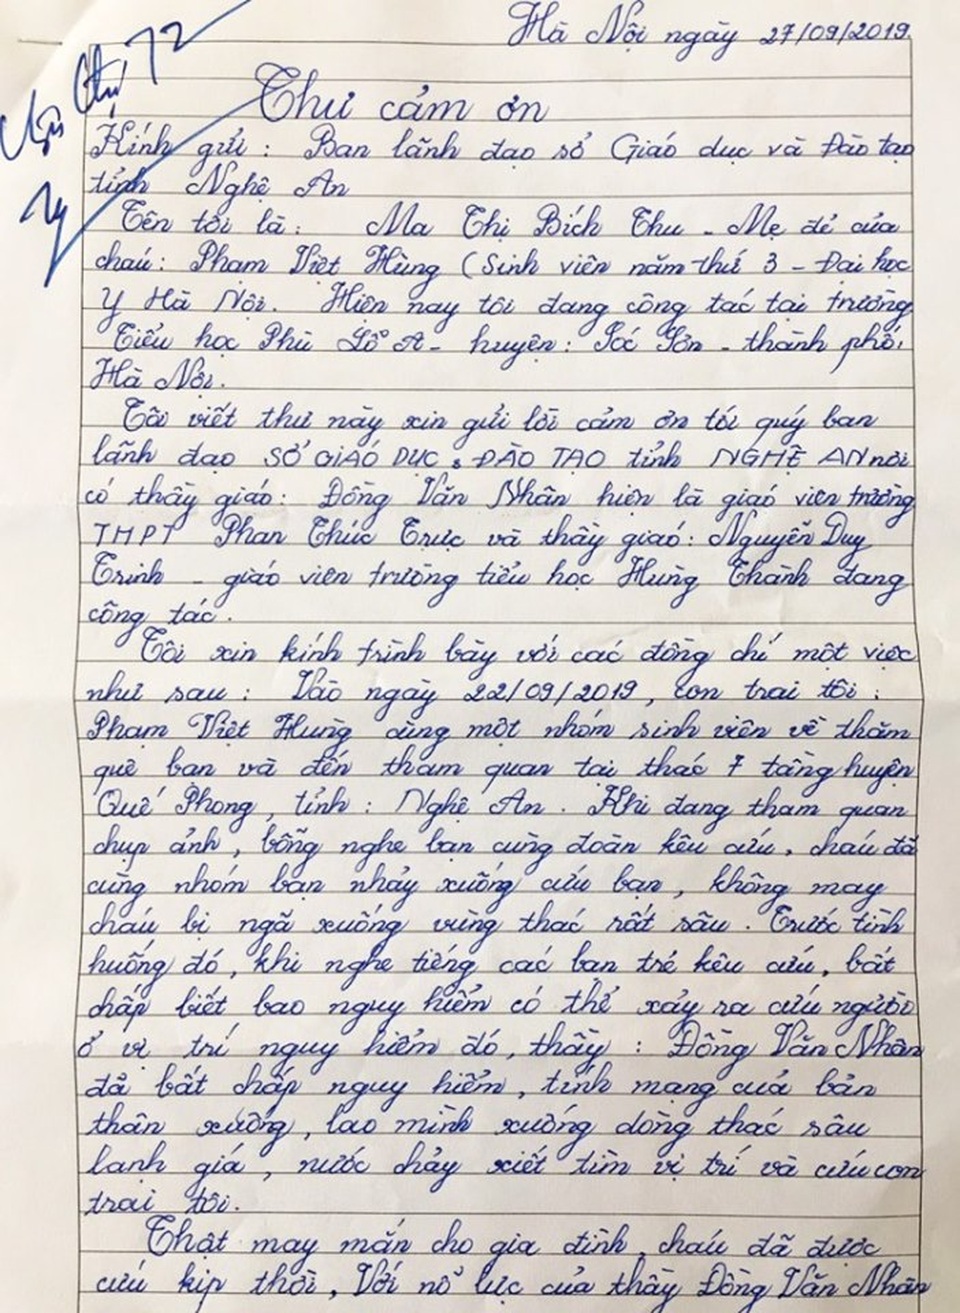 Hà Nội ngày 27/09/2019
Thư cảm ơn
Kính gửi : Ban lãnh đạo sở Giáo dục và Đào tạo
tỉnh Nghệ An
Tên tôi là : Ma Thị Bích Thu - Mẹ đẻ của
cháu : Phạm Việt Hùng (Sinh viên năm thứ 3 - Đại học
Y Hà Nội. Hiện nay tôi đang công tác tại trường
Tiểu học Phù Lỗ A - huyện : Sóc Sơn - thành phố,
Hà Nội.
Tôi viết thư này xin gửi lời cảm ơn tới quý ban
lãnh đạo SỞ GIÁO DỤC & ĐÀO TẠO tỉnh NGHỆ AN nơi
có thầy giáo : Đồng Văn Nhân hiện là giáo viên trường
THPT Phan Thúc Trực và thầy giáo : Nguyễn Duy
Trinh - giáo viên trường tiểu học Hùng Thành đang
công tác.
Tôi xin kính trình bày với các đồng chí một việc
như sau : Vào ngày 22/09/2019, con trai tôi :
Phạm Việt Hùng cùng một nhóm sinh viên về thăm
quê bạn và đến tham quan tại thác 7 tầng huyện
Quế Phong, tỉnh : Nghệ An. Khi đang tham quan
chụp ảnh, bỗng nghe bạn cùng đoàn kêu cứu, cháu đã
cùng nhóm bạn nhảy xuống cứu bạn, không may
cháu bị ngã xuống vùng thác rất sâu. Trước tình
huống đó, khi nghe tiếng các bạn trẻ kêu cứu, bất
chấp biết bao nguy hiểm có thể xảy ra cứu người
ở vị trí nguy hiểm đó, thầy : Đồng Văn Nhân
đã bất chấp nguy hiểm, tính mạng của bản
thân xuống, lao mình xuống dòng thác sâu
lạnh giá, nước chảy xiết tìm vị trí và cứu con
trai tôi.
Thật may mắn cho gia đình, cháu đã được
cứu kịp thời, Với nỗ lực của thầy Đồng Văn Nhân